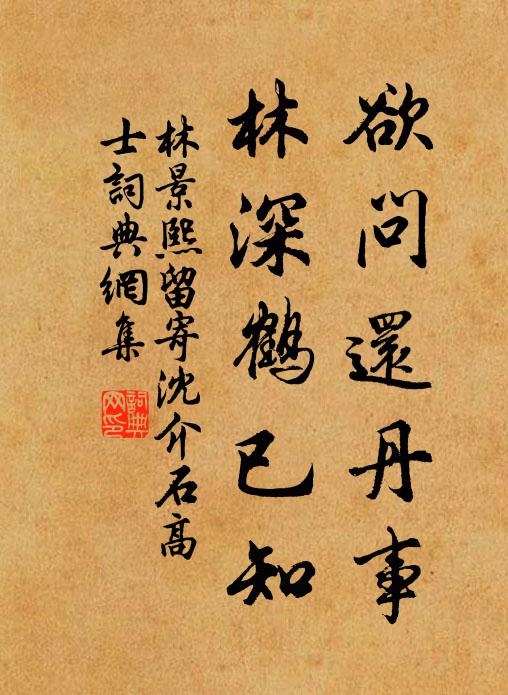 欲問還丹事
林深鶴已知
林景熙留寄沈介石高
士詞典網集
詞典
网印